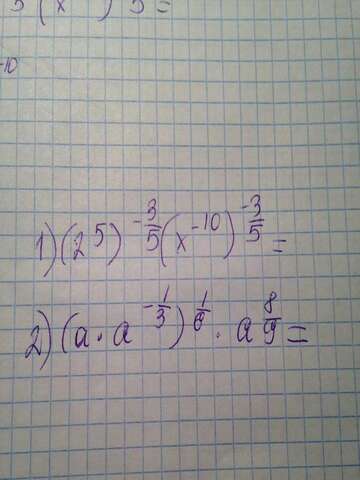 5 (x ) 5 =
-10
1) (2^5)^{-3/5} (x^{-10})^{-3/5} =
2) (a · a^{-1/3})^{1/6} · a^{8/9} =